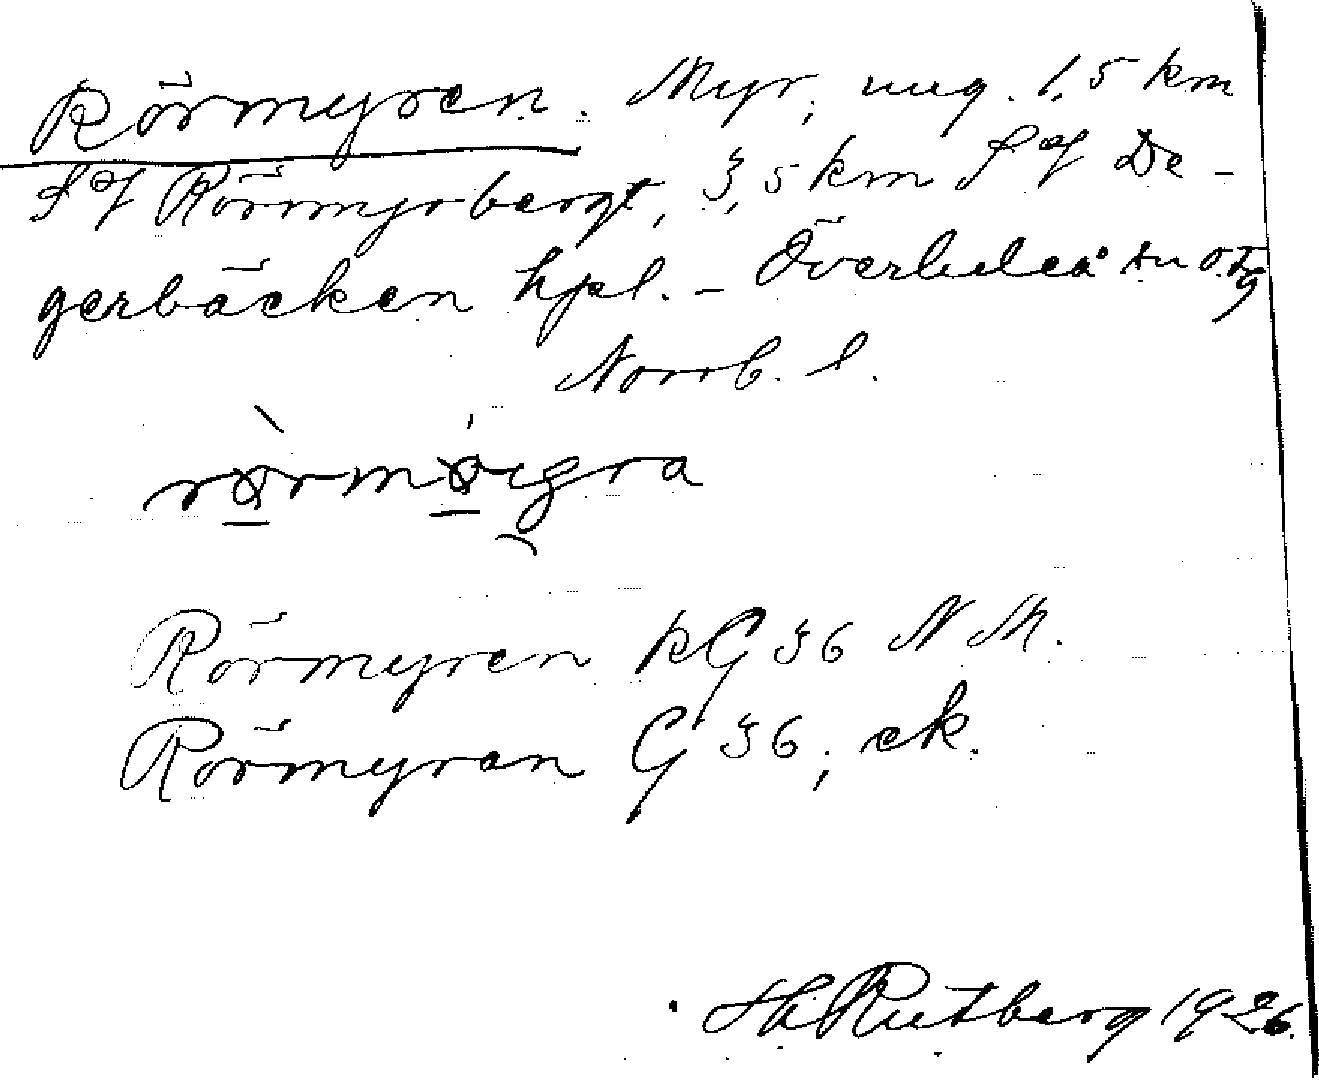 Rörmyren. Myr, ung. 1,5 km
S of Rörmyrbergt, 3,5 km S of De-
gerbäcken hpl. - Överluleå sn
Norrb. l.
Rörmyren kG 36 N M.
Rörmyran G 36, ek.
Hh Rutberg 1926.